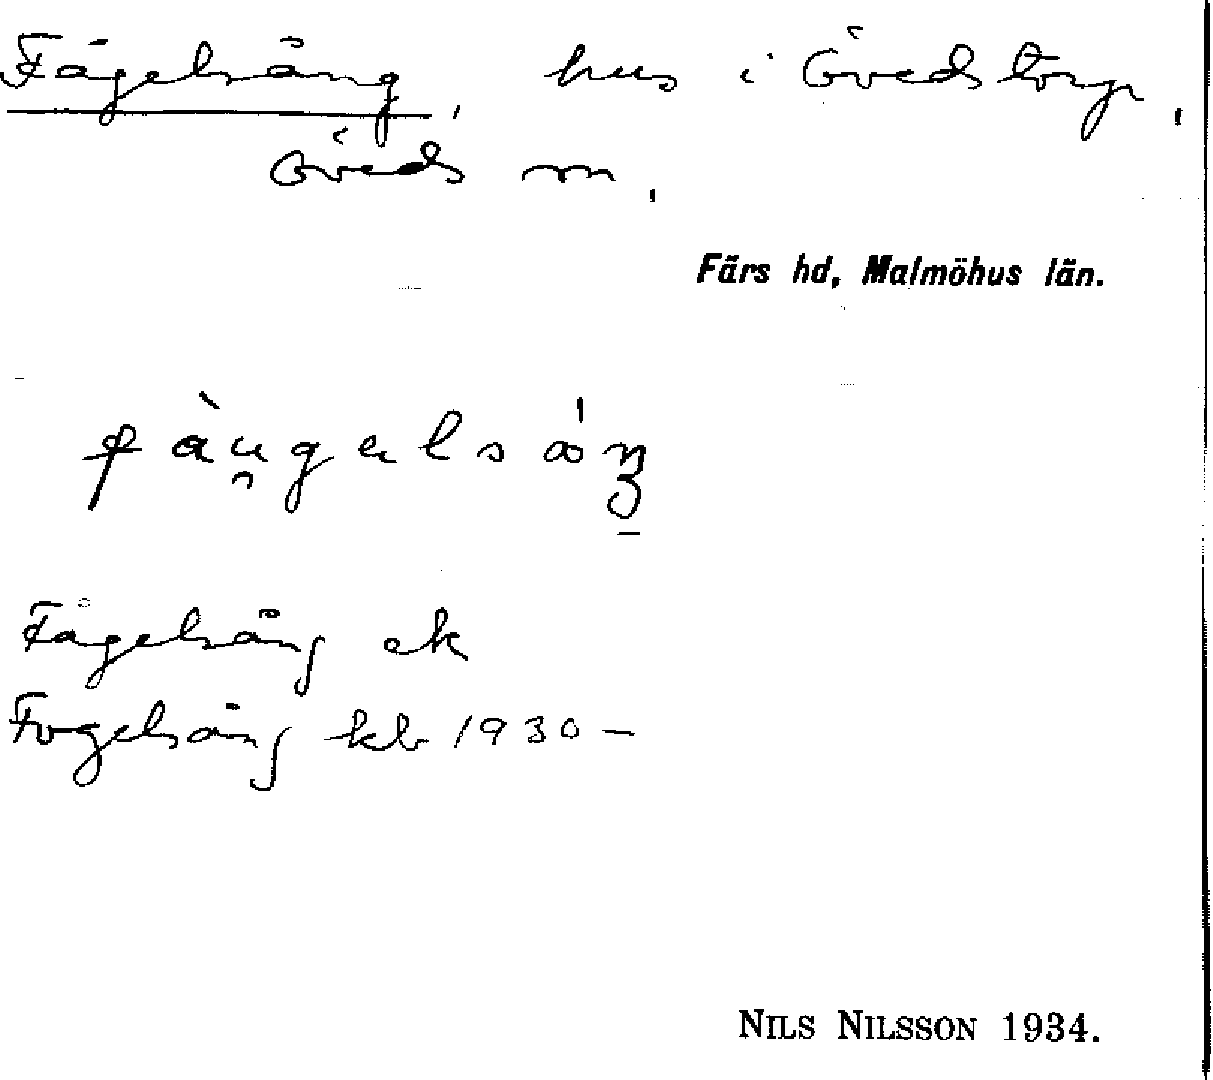 Fågelsång, hus i Övedstorp,
Öveds sn.
Färs hd, Malmöhus län.
Fågelsång ek
Fogelsång kb 1930–
NILS NILSSON 1934.